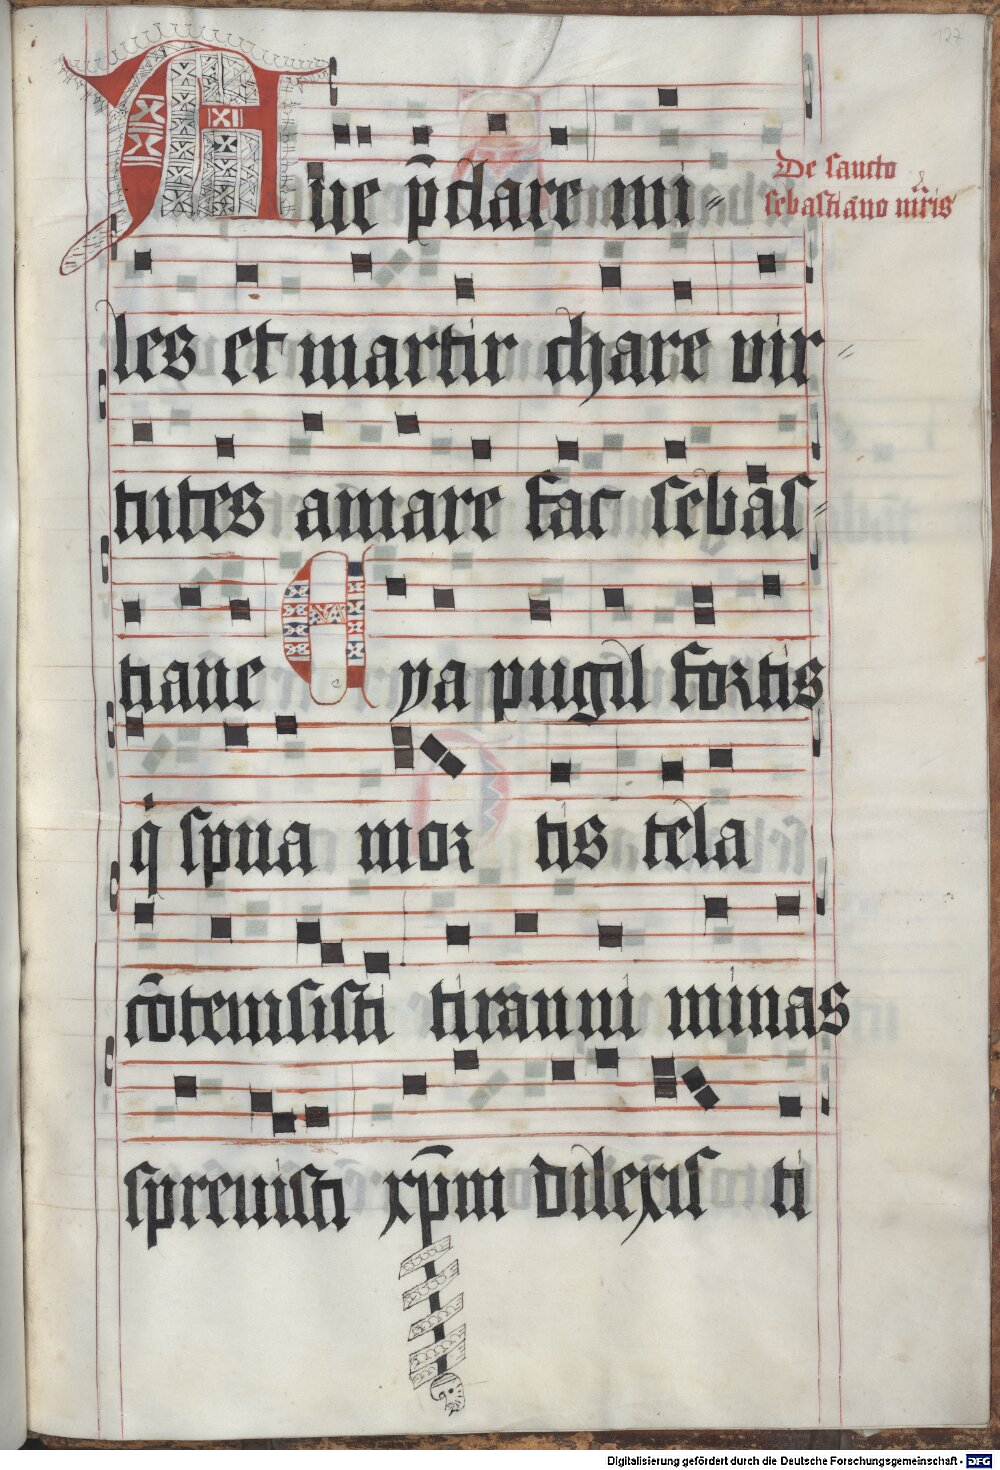 127
Aue p̄clare mi=
De sancto
sebastiano m̄ris
les et martir chare vir=
tutes amare fac sebas=
tiane Eya pugil fortis
q̇ spua mortis tela
cōtemsisti tiranni minas
spreuisti xp̄m dilexisti
Digitalisierung gefördert durch die Deutsche Forschungsgemeinschaft - DFG